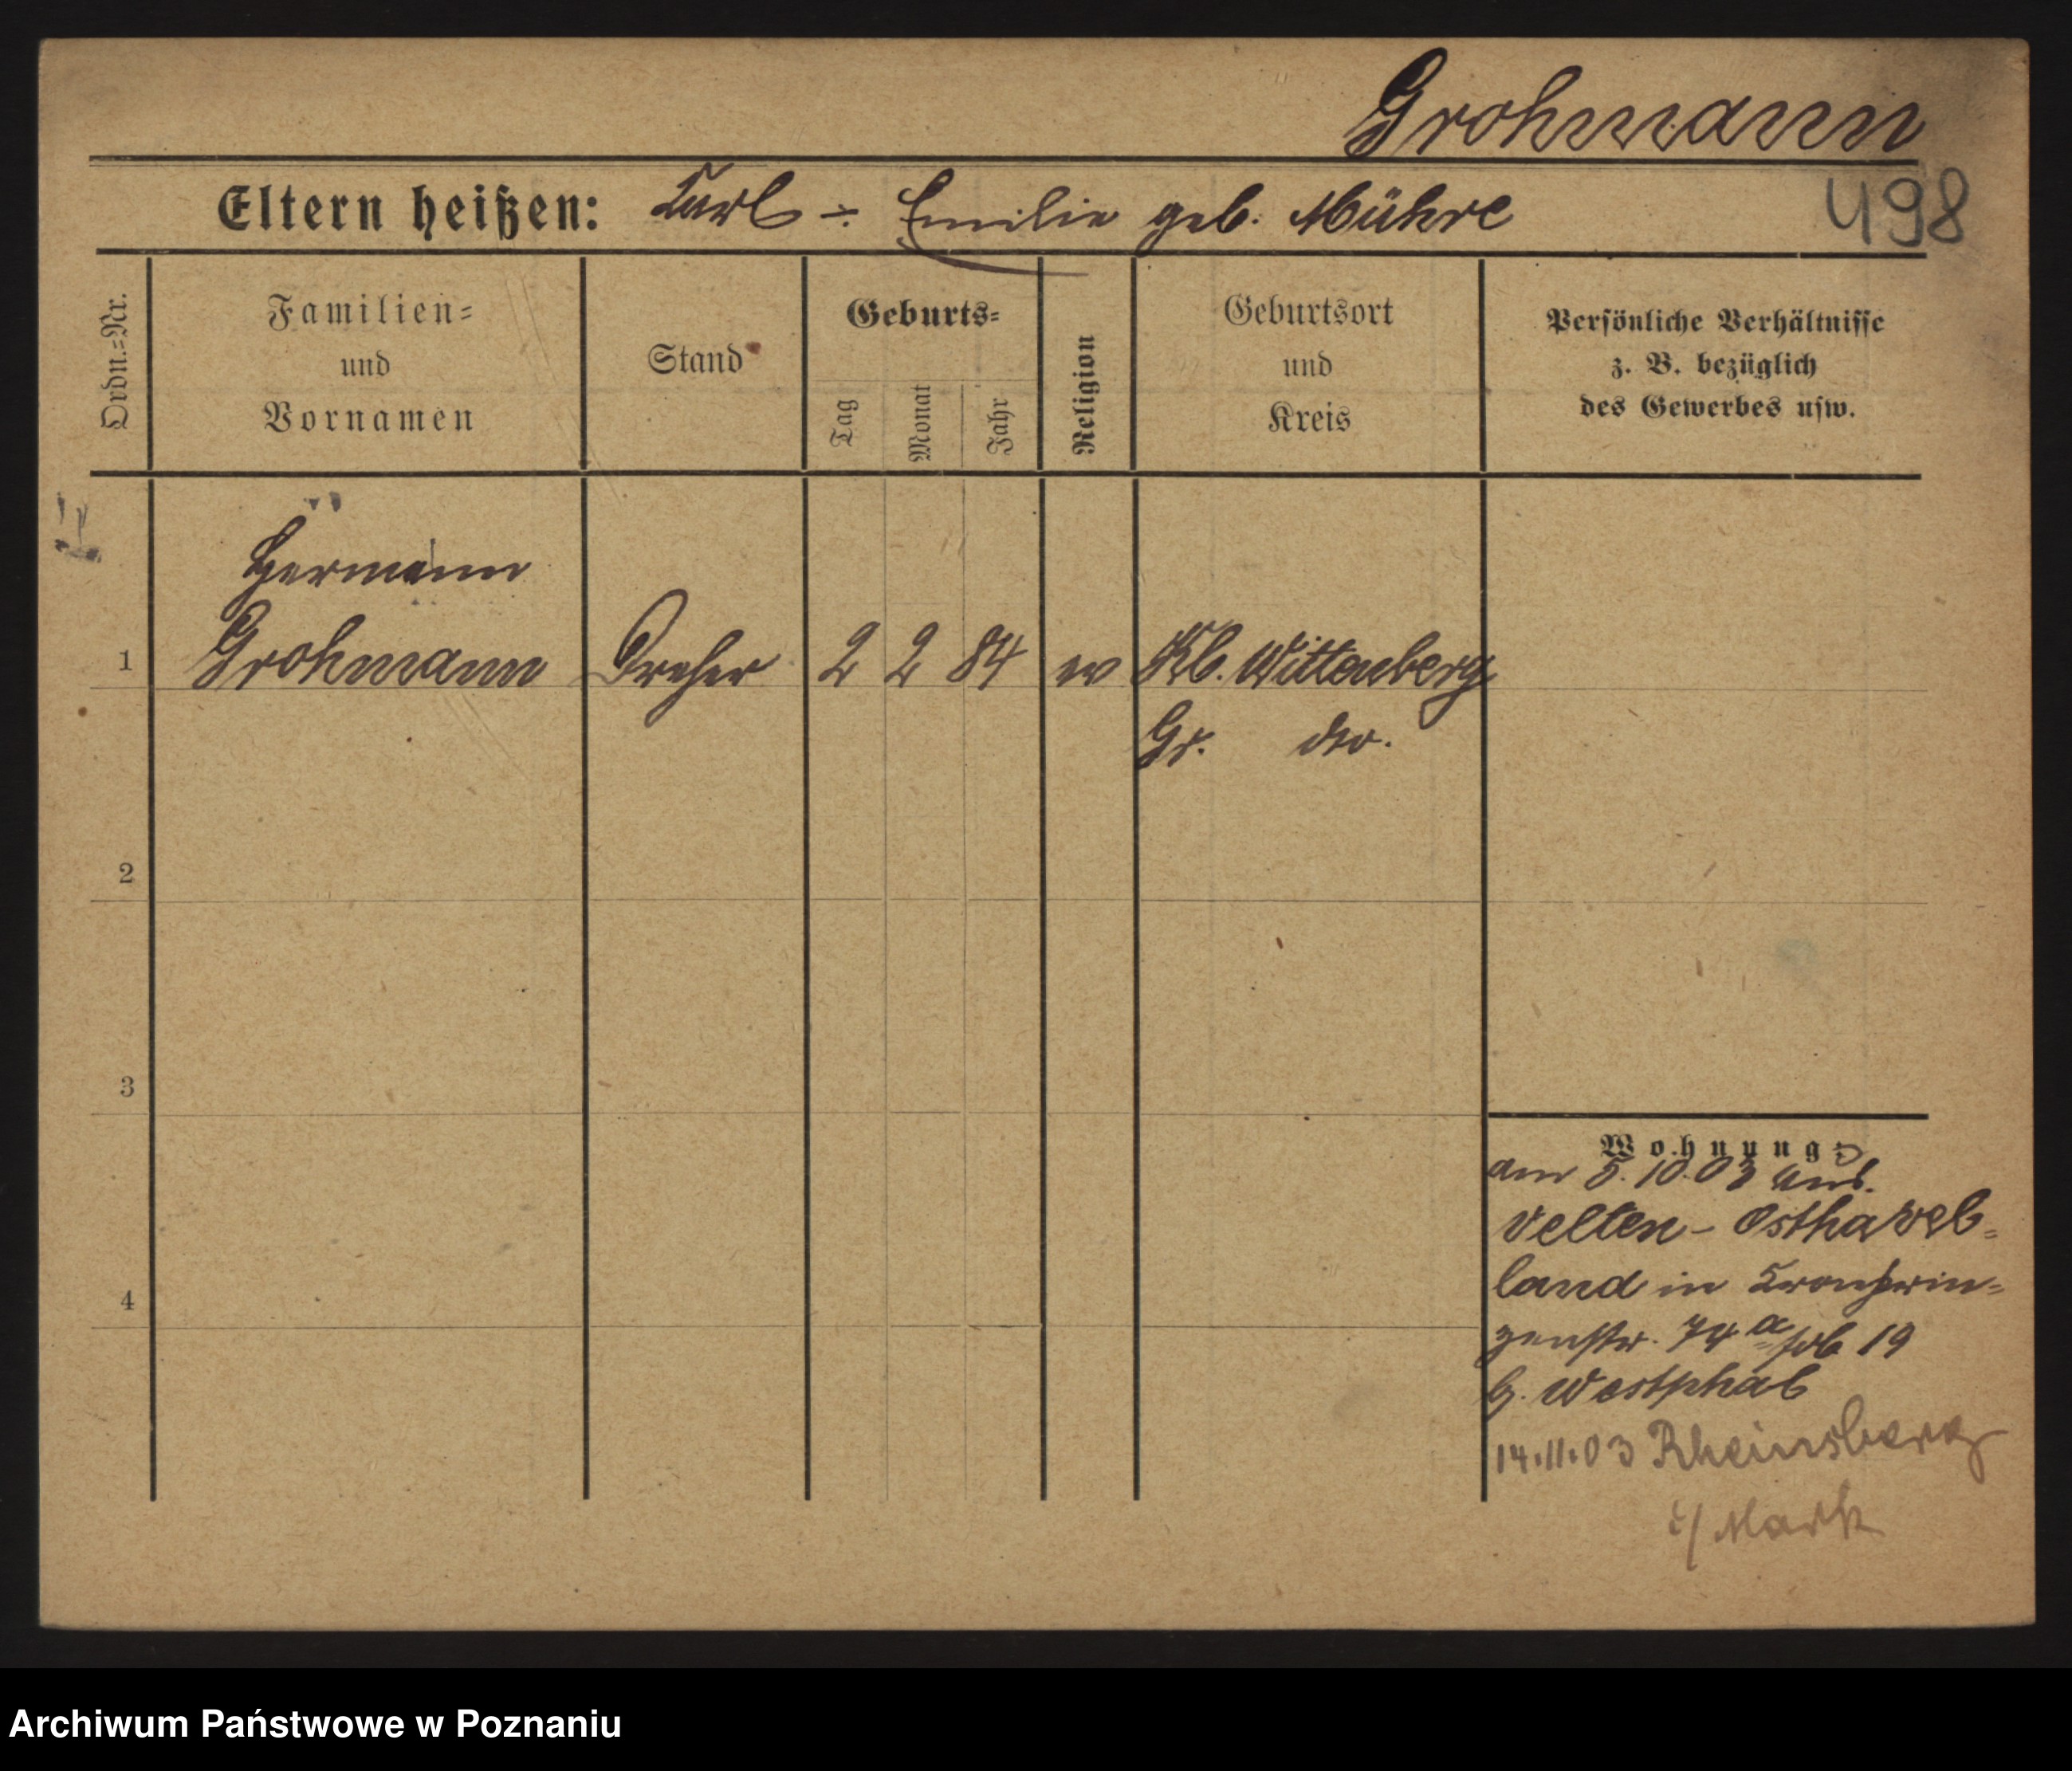 Grohmann
Eltern heißen: Karl - Emilie geb. Mühre
498
Ordn.=Nr.
Familien=
und
Vornamen
Stand
Geburts=
Tag
Monat
Jahr
Religion
Geburtsort
und
Kreis
Persönliche Verhältnisse
z. B. bezüglich
des Gewerbes usw.
Hermann
1 Grohmann Dreher 2 2 84 ev Kl. Wittenberg
Gr. do.
2
3
4
Wohnung:
am 5.10.03 aus
Velten - Osthavel=
land in Kronprin=
zenstr. 74a
19
b. Westphal
14.11.03 Rheinsberg
i/Mark
Archiwum Państwowe w Poznaniu